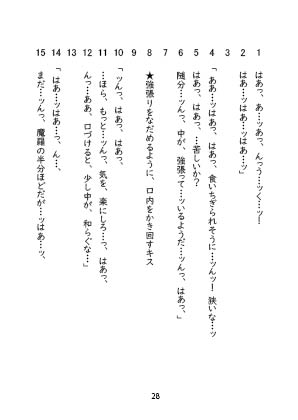 1 はあっ、あ…ッあっ、んっう…ッく…ッ!
2 はあ…ッはあ…ッはあ…ッ」
3
4 「ああ…ッはあっ、はあっ、食いちぎられそうに…ッんッ! 狭いな…ッ
5 はあっ、はあっ、…苦しいか?
6 随分…ッんっ、中が、強張って…ッいるようだ…ッんっ、はあっ、」
7
8 ★強張りをなだめるように、口内をかき回すキス
9
10 「ッんっ、はあっ、はあっ、
11 …ほら、もっと…ッんっ、気を、楽にしろ…っ、はあっ、
12 んっ…ああ、口づけると、少し中が、和らぐな…」
13
14 「はあ…ッはあ…っ、ん…、
15 まだ…ッんっ、魔羅の半分ほどだが…ッはあ…ッ、
28